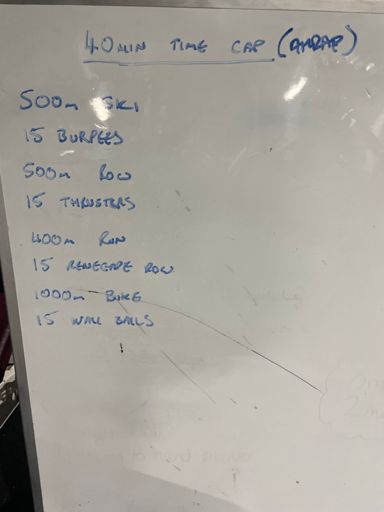 40 MIN TIME CAP (AMRAP)
500m SKI
15 BURPEES
500m ROW
15 THRUSTERS
400m RUN
15 RENEGADE ROW
1000m BIKE
15 WALL BALLS
to hand